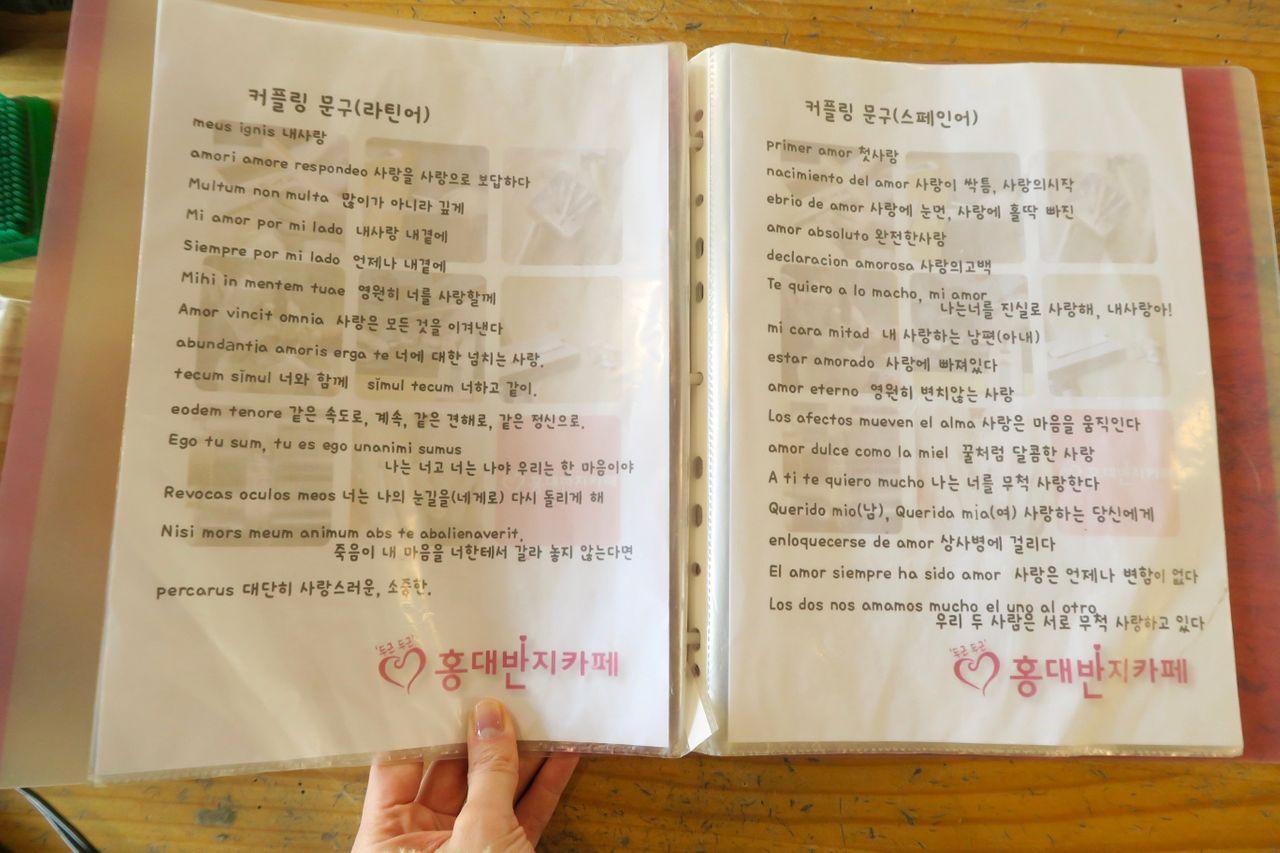 커플링 문구(라틴어)
meus ignis 내사랑
amori amore respondeo 사랑을 사랑으로 보답하다
Multum non multa 많이가 아니라 깊게
Mi amor por mi lado 내사랑 내곁에
Siempre por mi lado 언제나 내곁에
Mihi in mentem tuae 영원히 너를 사랑할께
Amor vincit omnia 사랑은 모든 것을 이겨낸다
abundantia amoris erga te 너에 대한 넘치는 사랑.
tecum sĭmul 너와 함께 sĭmul tecum 너하고 같이.
eodem tenore 같은 속도로, 계속, 같은 견해로, 같은 정신으로.
Ego tu sum, tu es ego unanimi sumus
나는 너고 너는 나야 우리는 한 마음이야
Revocas oculos meos 너는 나의 눈길을(네게로) 다시 돌리게 해
Nisi mors meum animum abs te abalienaverit.
죽음이 내 마음을 너한테서 갈라 놓지 않는다면
percarus 대단히 사랑스러운, 소중한.
'두근 두근'
홍대반지카페
커플링 문구(스페인어)
primer amor 첫사랑
nacimiento del amor 사랑이 싹틈, 사랑의시작
ebrio de amor 사랑에 눈먼, 사랑에 홀딱 빠진
amor absoluto 완전한사랑
declaracion amorosa 사랑의고백
Te quiero a lo macho, mi amor
나는너를 진실로 사랑해, 내사랑아!
mi cara mitad 내 사랑하는 남편(아내)
estar amorado 사랑에 빠져있다
amor eterno 영원히 변치않는 사랑
Los afectos mueven el alma 사랑은 마음을 움직인다
amor dulce como la miel 꿀처럼 달콤한 사랑
A ti te quiero mucho 나는 너를 무척 사랑한다
Querido mio(남), Querida mia(여) 사랑하는 당신에게
enloquecerse de amor 상사병에 걸리다
El amor siempre ha sido amor 사랑은 언제나 변함이 없다
Los dos nos amamos mucho el uno al otro
우리 두 사람은 서로 무척 사랑하고 있다
'두근 두근'
홍대반지카페